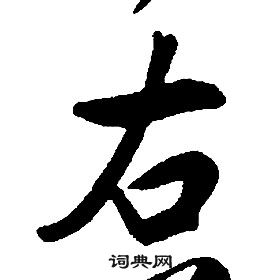 右
词典网